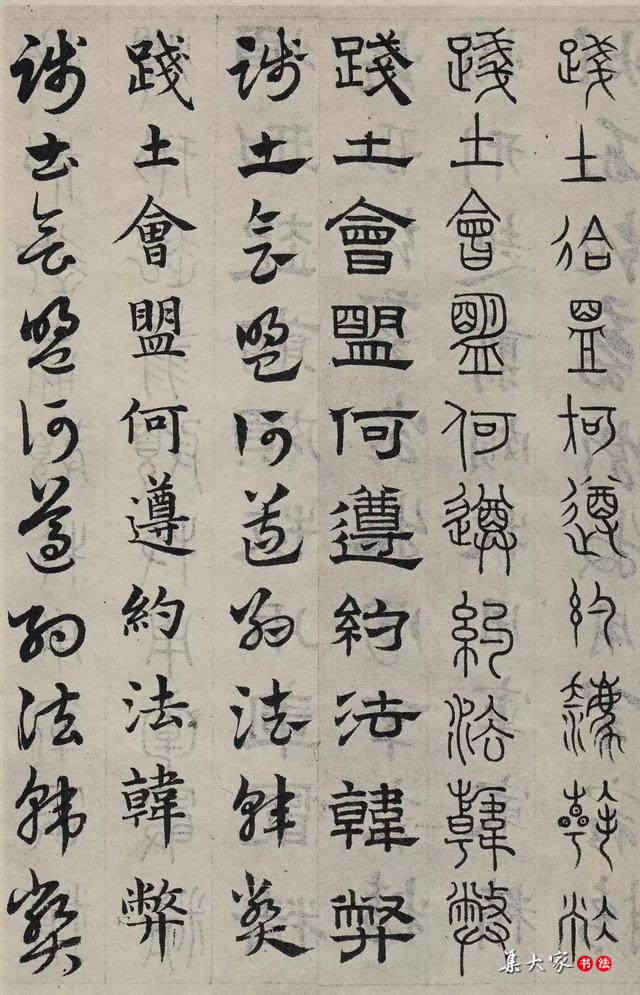 踐土會盟何遵約法韓弊
踐土會盟何遵約法韓弊
踐土會盟何遵約法韓弊
踐土會盟何遵約法韓弊
踐土會盟何遵約法韓弊
踐土會盟何遵約法韓弊
集大家书法